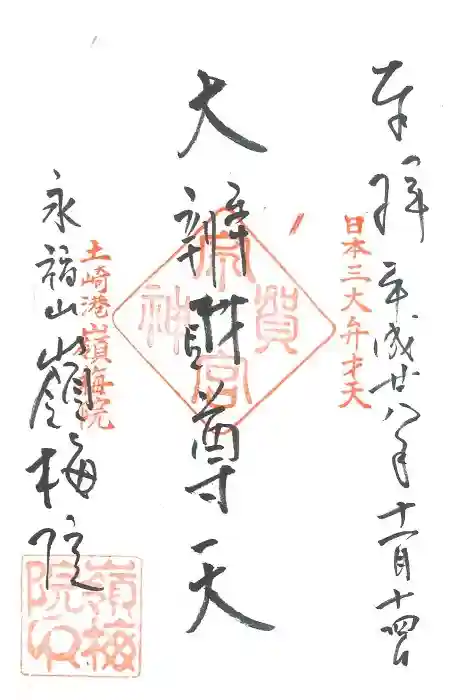 奉拝 平成廿八年十一月十四日
日本三大弁才天
大辨財尊天
賀神宮
土崎港嶺梅院
永福山嶺梅院
嶺梅
院印